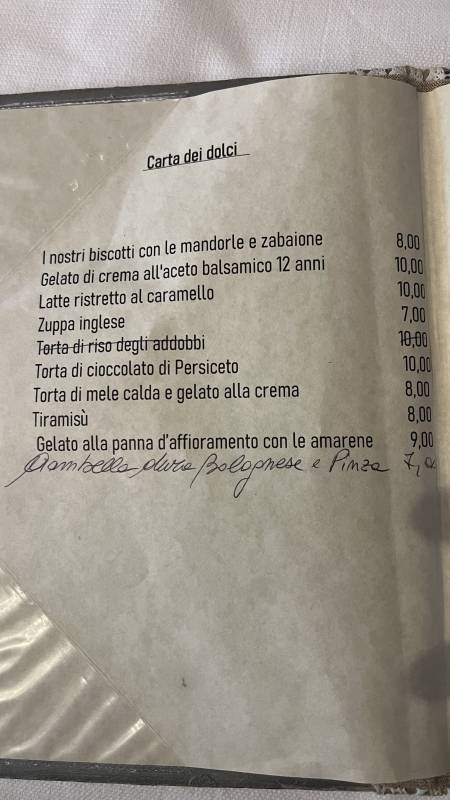 Carta dei dolci
I nostri biscotti con le mandorle e zabaione 8,00
Gelato di crema all'aceto balsamico 12 anni 10,00
Latte ristretto al caramello 10,00
Zuppa inglese 7,00
Torta di riso degli addobbi 10,00
Torta di cioccolato di Persiceto 10,00
Torta di mele calda e gelato alla crema 8,00
Tiramisù 8,00
Gelato alla panna d'affioramento con le amarene 9,00
Ciambella dura Bolognese e Pinza 7,